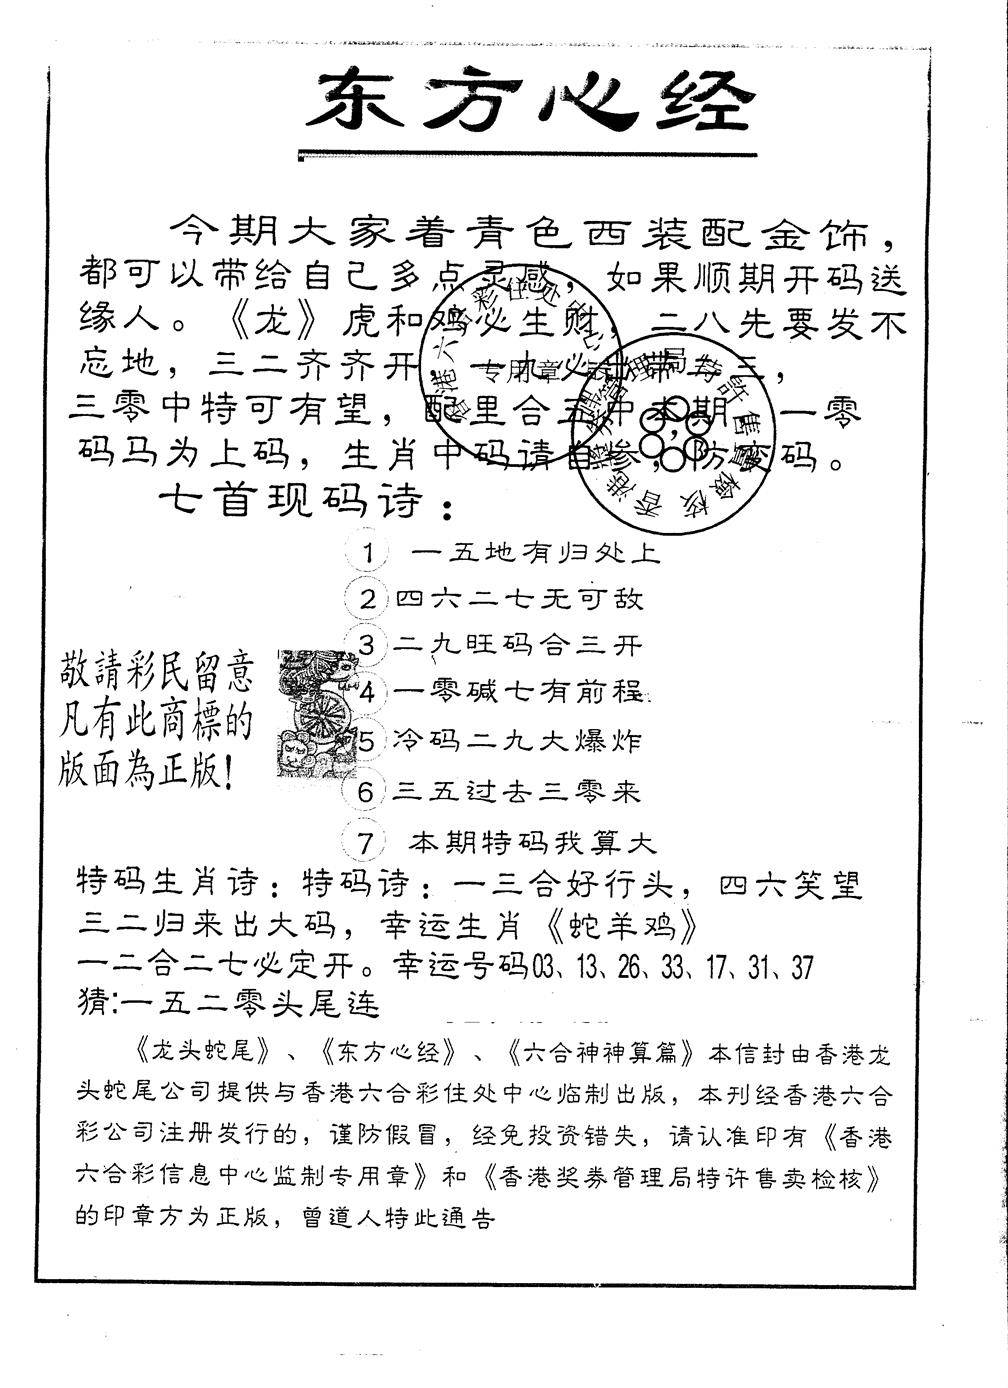 东方心经
今期大家着青色西装配金饰，
都可以带给自己多点灵感，如果顺期开码送
缘人。《龙》虎和鸡必生财，二八先要发不
忘地，三二齐齐开，一九必出带一三，
三零中特可有望，配里合五中本期，一零
码马为上码，生肖中码请自参，防 码。
七首现码诗：
1 一五地有归处上
2 四六二七无可敌
3 二九旺码合三开
敬請彩民留意
凡有此商標的
版面為正版！
4 一零碱七有前程
5 冷码二九大爆炸
6 三五过去三零来
7 本期特码我算大
特码生肖诗：特码诗：一三合好行头，四六笑望
三二归来出大码，幸运生肖《蛇羊鸡》
一二合二七必定开。幸运号码03、13、26、33、17、31、37
猜:一五二零头尾连
《龙头蛇尾》、《东方心经》、《六合神神算篇》本信封由香港龙
头蛇尾公司提供与香港六合彩住处中心临制出版，本刊经香港六合
彩公司注册发行的，谨防假冒，经免投资错失，请认准印有《香港
六合彩信息中心监制专用章》和《香港奖券管理局特许售卖检核》
的印章方为正版，曾道人特此通告
香港六合彩住处中心
专用章
香港奖券管理局特許售賣檢核